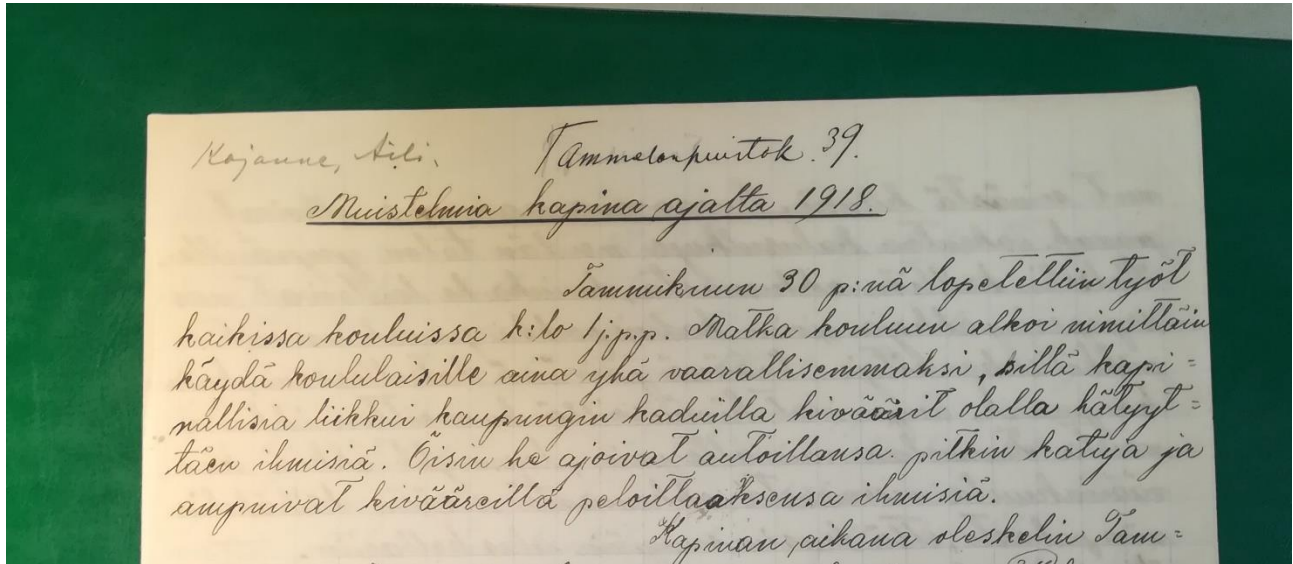 Kojanne, Aili. Tammelanpuistok. 39.
Muistelmia kapina ajalta 1918.
Tammikuun 30 p:nä lopetettiin työt
kaikissa kouluissa k:lo 1 j.p.p. Matka kouluun alkoi nimittäin
käydä koululaisille aina yhä vaarallisemmaksi, sillä kapi=
nallisia liikkui kaupungin kaduilla kiväärit olalla hätyyt=
täen ihmisiä. Öisin he ajoivat autoillansa pitkin katuja ja
ampuivat kivääreillä peloittaaksensa ihmisiä.
Kapinan aikana oleskelin Tam=